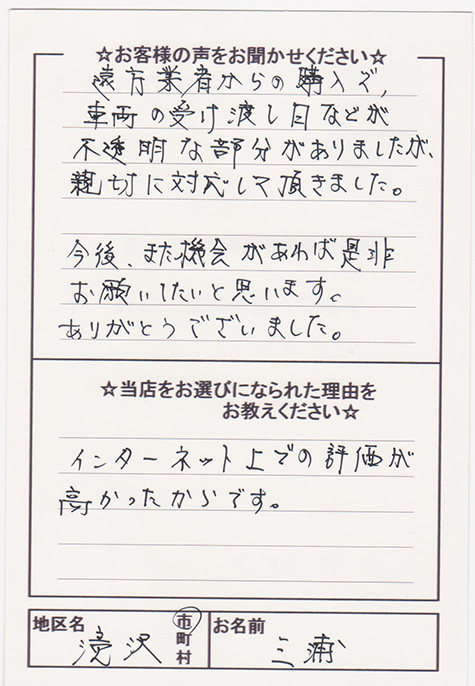 ☆お客様の声をお聞かせください☆
遠方業者からの購入で、
車両の受け渡し日などが
不透明な部分がありましたが、
親切に対応して頂きました。
今後、また機会があれば是非
お願いしたいと思います。
ありがとうございました。
☆当店をお選びになられた理由を
お教えください☆
インターネット上での評価が
高かったからです。
地区名 滝沢 市町村 お名前 三浦